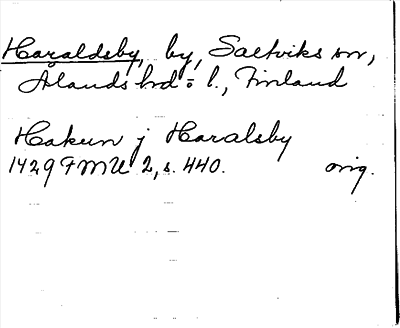 Haraldsby, by, Saltviks sn,
Ålands hd o l., Finland
Hakun j Haralsby
1429 FMU 2, s. 440. orig.